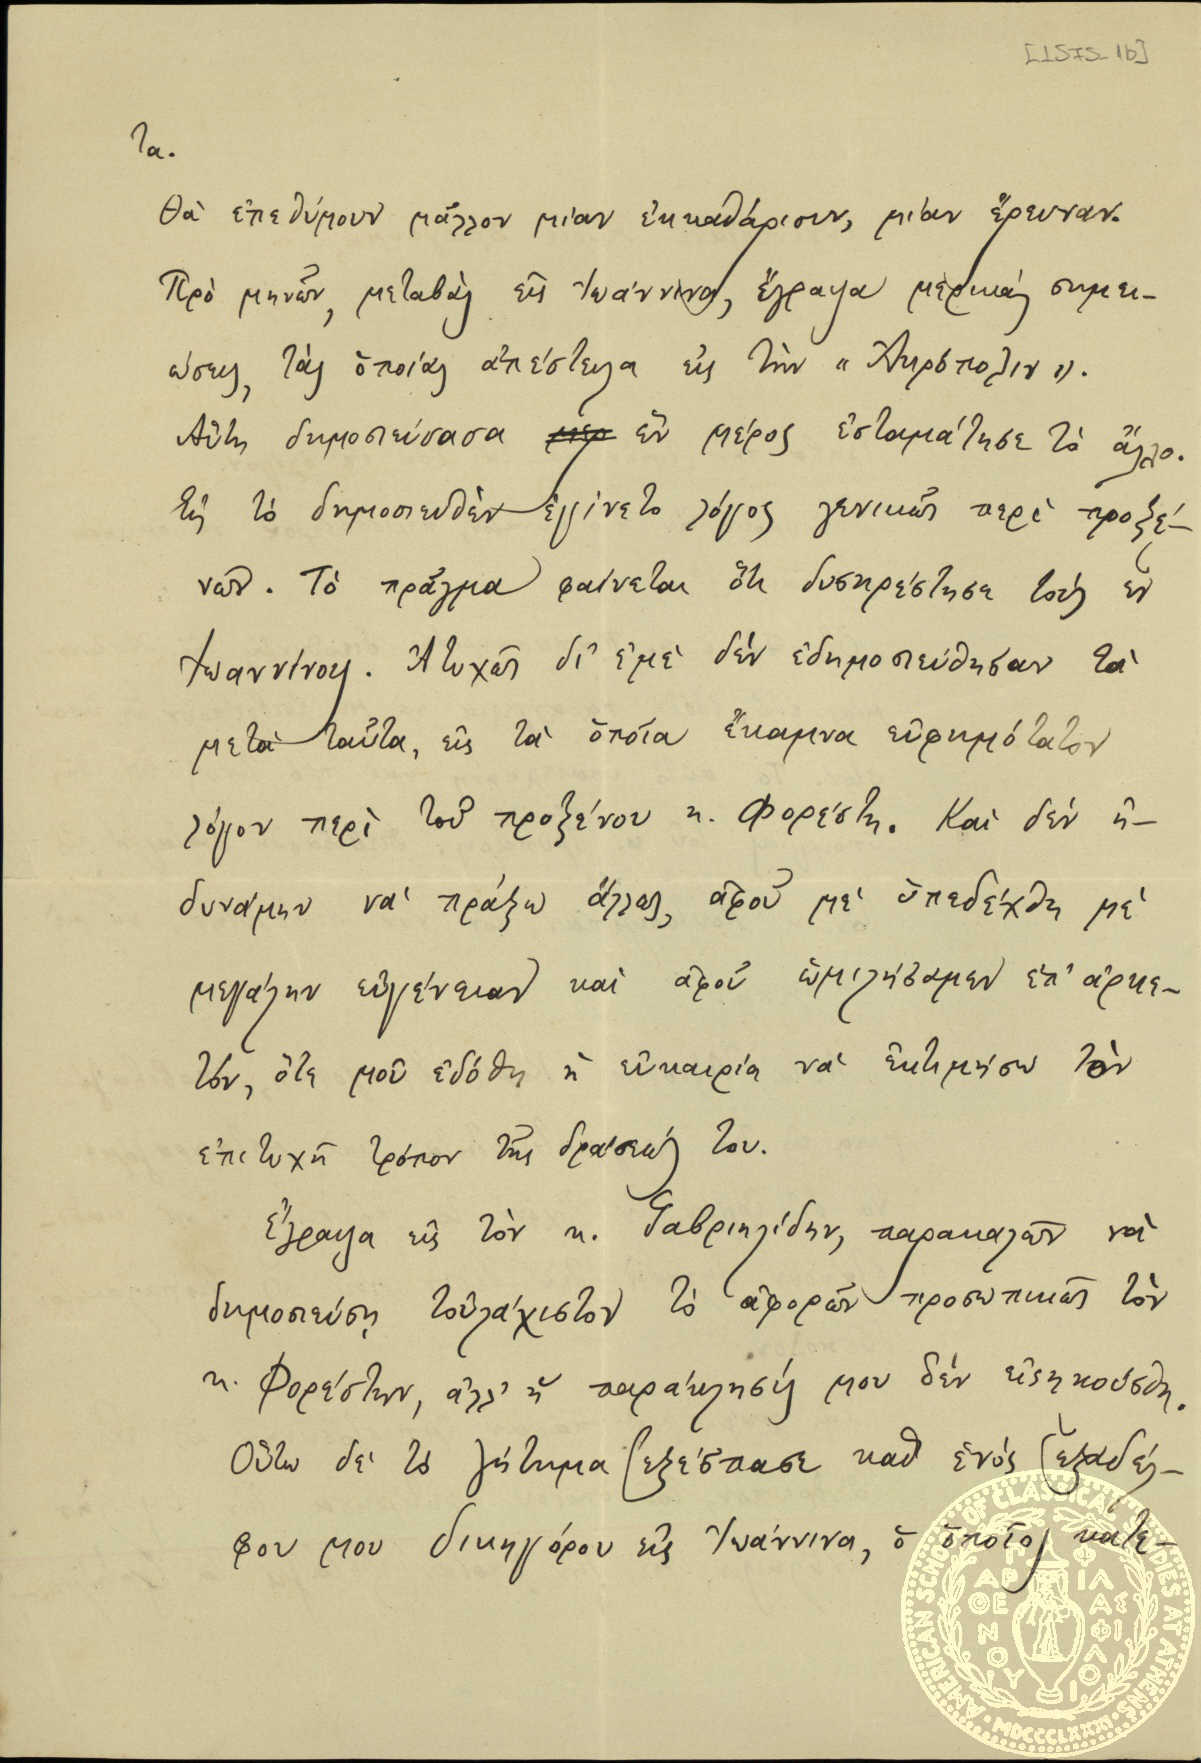 [1575-1b]
τα.
Θὰ ἐπεθύμουν μᾶλλον μίαν ἐκκαθάρισιν, μίαν ἔρευναν.
Πρὸ μηνῶν, μεταβὰς εἰς Ἰωάννινα, ἔγραψα μερικὰς σημει-
ώσεις, τὰς ὁποίας ἀπέστειλα εἰς τὴν « Ἀκρόπολιν ».
Αὕτη δημοσιεύσασα μερ ἓν μέρος ἐσταμάτησε τὸ ἄλλο.
Εἰς τὸ δημοσιευθὲν ἐγίνετο λόγος γενικῶς περὶ προξέ-
νων. Τὸ πρᾶγμα φαίνεται ὅτι δυσηρέστησε τοὺς ἐν
Ἰωαννίνοις. Ἀτυχῶς δι' ἐμὲ δὲν ἐδημοσιεύθησαν τὰ
μετὰ ταῦτα, εἰς τὰ ὁποῖα ἔκαμνα εὐφημότατον
λόγον περὶ τοῦ προξένου κ. Φορέστη. Καὶ δὲν ἠ-
δυνάμην νὰ πράξω ἄλλως, ἀφοῦ μὲ ὑπεδέχθη μὲ
μεγάλην εὐγένειαν καὶ ἀφοῦ ὡμιλήσαμεν ἐπ' ἀρκε-
τόν, ὅτε μοῦ ἐδόθη ἡ εὐκαιρία νὰ ἐκτιμήσω τὸν
ἐπιτυχῆ τρόπον τῆς δράσεώς του.
Ἔγραψα εἰς τὸν κ. Γαβριηλίδην, παρακαλῶν νὰ
δημοσιεύσῃ τοὐλάχιστον τὸ ἀφορῶν προσωπικῶς τὸν
κ. Φορέστην, ἀλλ' ἡ παράκλησίς μου δὲν εἰσηκούσθη.
Οὕτω δὲ τὸ ζήτημα ἐξέσπασε καθ' ἑνὸς ἐξαδέλ-
φου μου δικηγόρου εἰς Ἰωάννινα, ὁ ὁποῖος κατε-
AMERICAN SCHOOL OF CLASSICAL STUDIES AT ATHENS · MDCCCLXXXI ·
ΠΑΡΘΕΝΟΥ ΦΙΛΑΣ ΦΙΛΙΟΥ